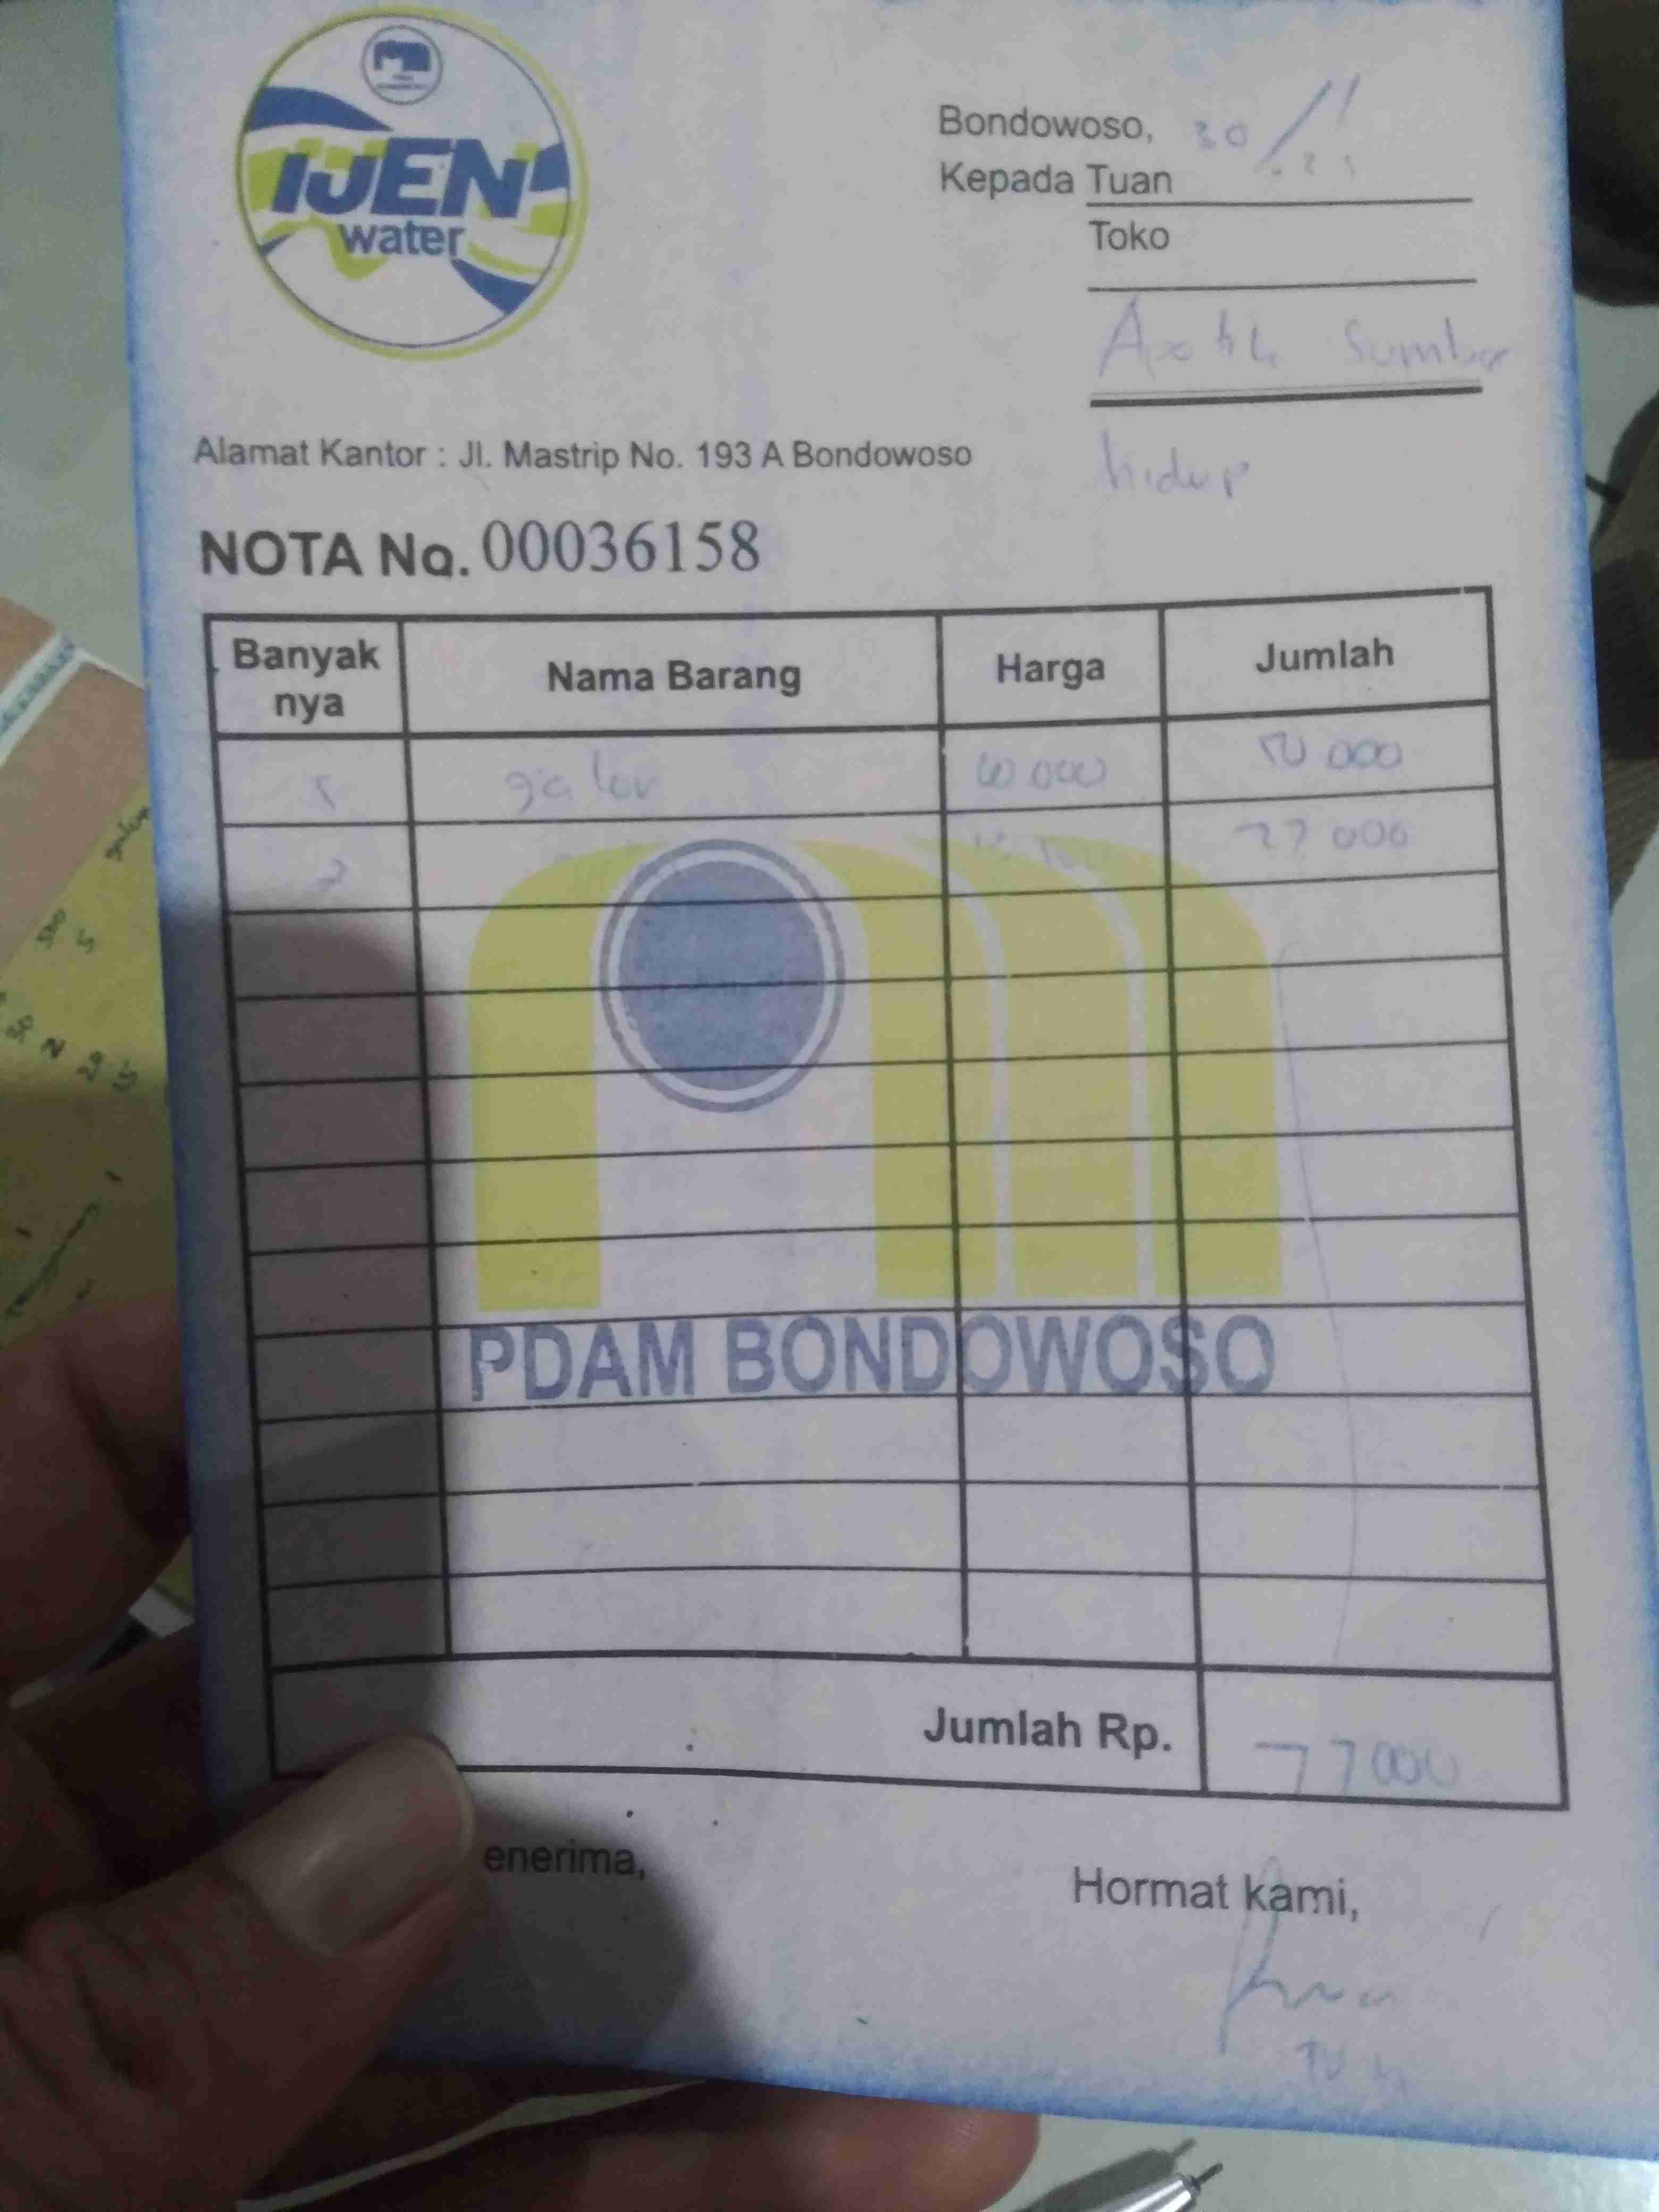 IJEN
water
Bondowoso, 30/11
Kepada Tuan
Toko
Apotik Sumber
hidup
Alamat Kantor : Jl. Mastrip No. 193 A Bondowoso
NOTA No. 00036158
Banyak nya Nama Barang Harga Jumlah
5 galon 10 000 50 000
2 27 000
PDAM BONDOWOSO
Jumlah Rp. 77 000
enerima,
Hormat kami,